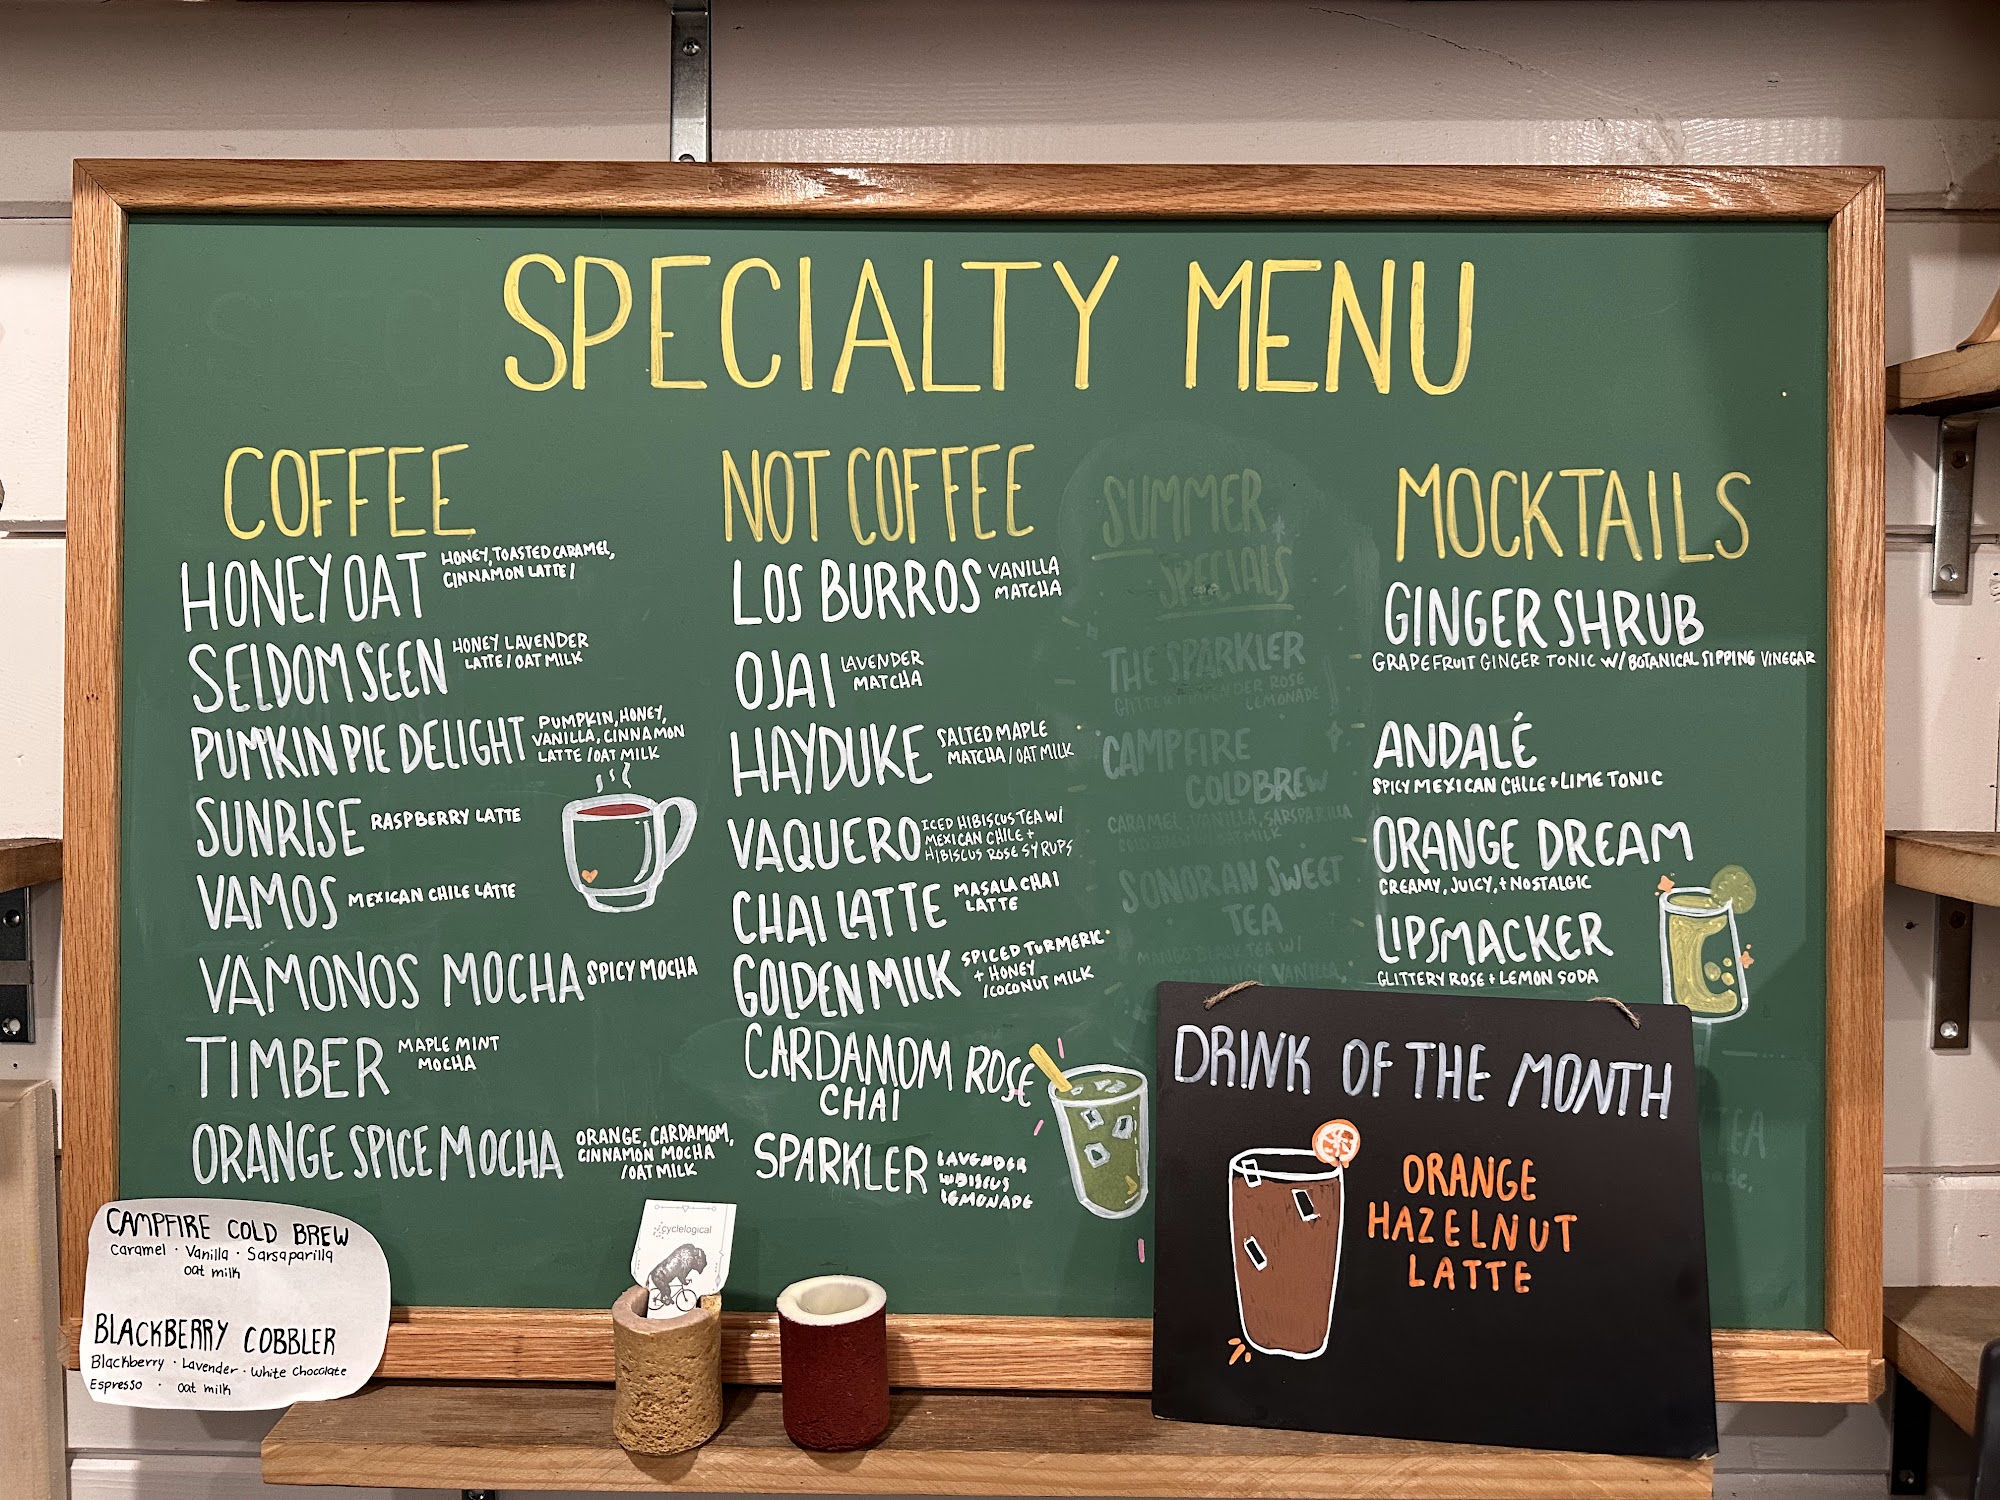 SPECIALTY MENU
COFFEE
HONEY OAT
HONEY, TOASTED CARAMEL,
CINNAMON LATTE /
SELDOM SEEN
HONEY LAVENDER
LATTE / OAT MILK
PUMPKIN PIE DELIGHT
PUMPKIN, HONEY,
VANILLA, CINNAMON
LATTE / OAT MILK
SUNRISE
RASPBERRY LATTE
VAMOS
MEXICAN CHILE LATTE
VAMONOS MOCHA
SPICY MOCHA
TIMBER
MAPLE MINT
MOCHA
ORANGE SPICE MOCHA
ORANGE, CARDAMOM,
CINNAMON MOCHA
/ OAT MILK
NOT COFFEE
LOS BURROS
VANILLA
MATCHA
OJAI
LAVENDER
MATCHA
HAYDUKE
SALTED MAPLE
MATCHA / OAT MILK
VAQUERO
ICED HIBISCUS TEA W/
MEXICAN CHILE +
HIBISCUS ROSE SYRUPS
CHAI LATTE
MASALA CHAI
LATTE
GOLDEN MILK
SPICED TURMERIC
+ HONEY
/ COCONUT MILK
CARDAMOM ROSE
CHAI
SPARKLER
LAVENDER
HIBISCUS
LEMONADE
SUMMER
SPECIALS
THE SPARKLER
LAVENDER ROSE
LEMONADE
CAMPFIRE
COLDBREW
CARAMEL, VANILLA, SARSPARILLA
COLD BREW / OAT MILK
SONORAN SWEET
TEA
MANGO BLACK TEA W/
VANILLA,
MOCKTAILS
GINGER SHRUB
GRAPEFRUIT GINGER TONIC W/ BOTANICAL SIPPING VINEGAR
ANDALÉ
SPICY MEXICAN CHILE + LIME TONIC
ORANGE DREAM
CREAMY, JUICY, + NOSTALGIC
LIPSMACKER
GLITTERY ROSE + LEMON SODA
TEA
DRINK OF THE MONTH
ORANGE
HAZELNUT
LATTE
CAMPFIRE COLD BREW
Caramel · Vanilla · Sarsaparilla
oat milk
BLACKBERRY COBBLER
Blackberry · Lavender · White Chocolate
Espresso · oat milk
cyclelogical